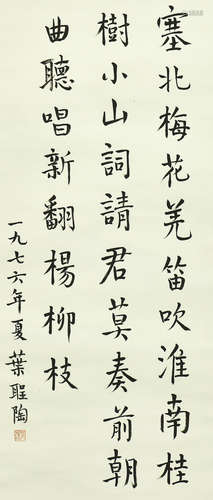 塞北梅花羌笛吹淮南桂
樹小山詞請君莫奏前朝
曲聽唱新翻楊柳枝
一九七六年夏葉聖陶